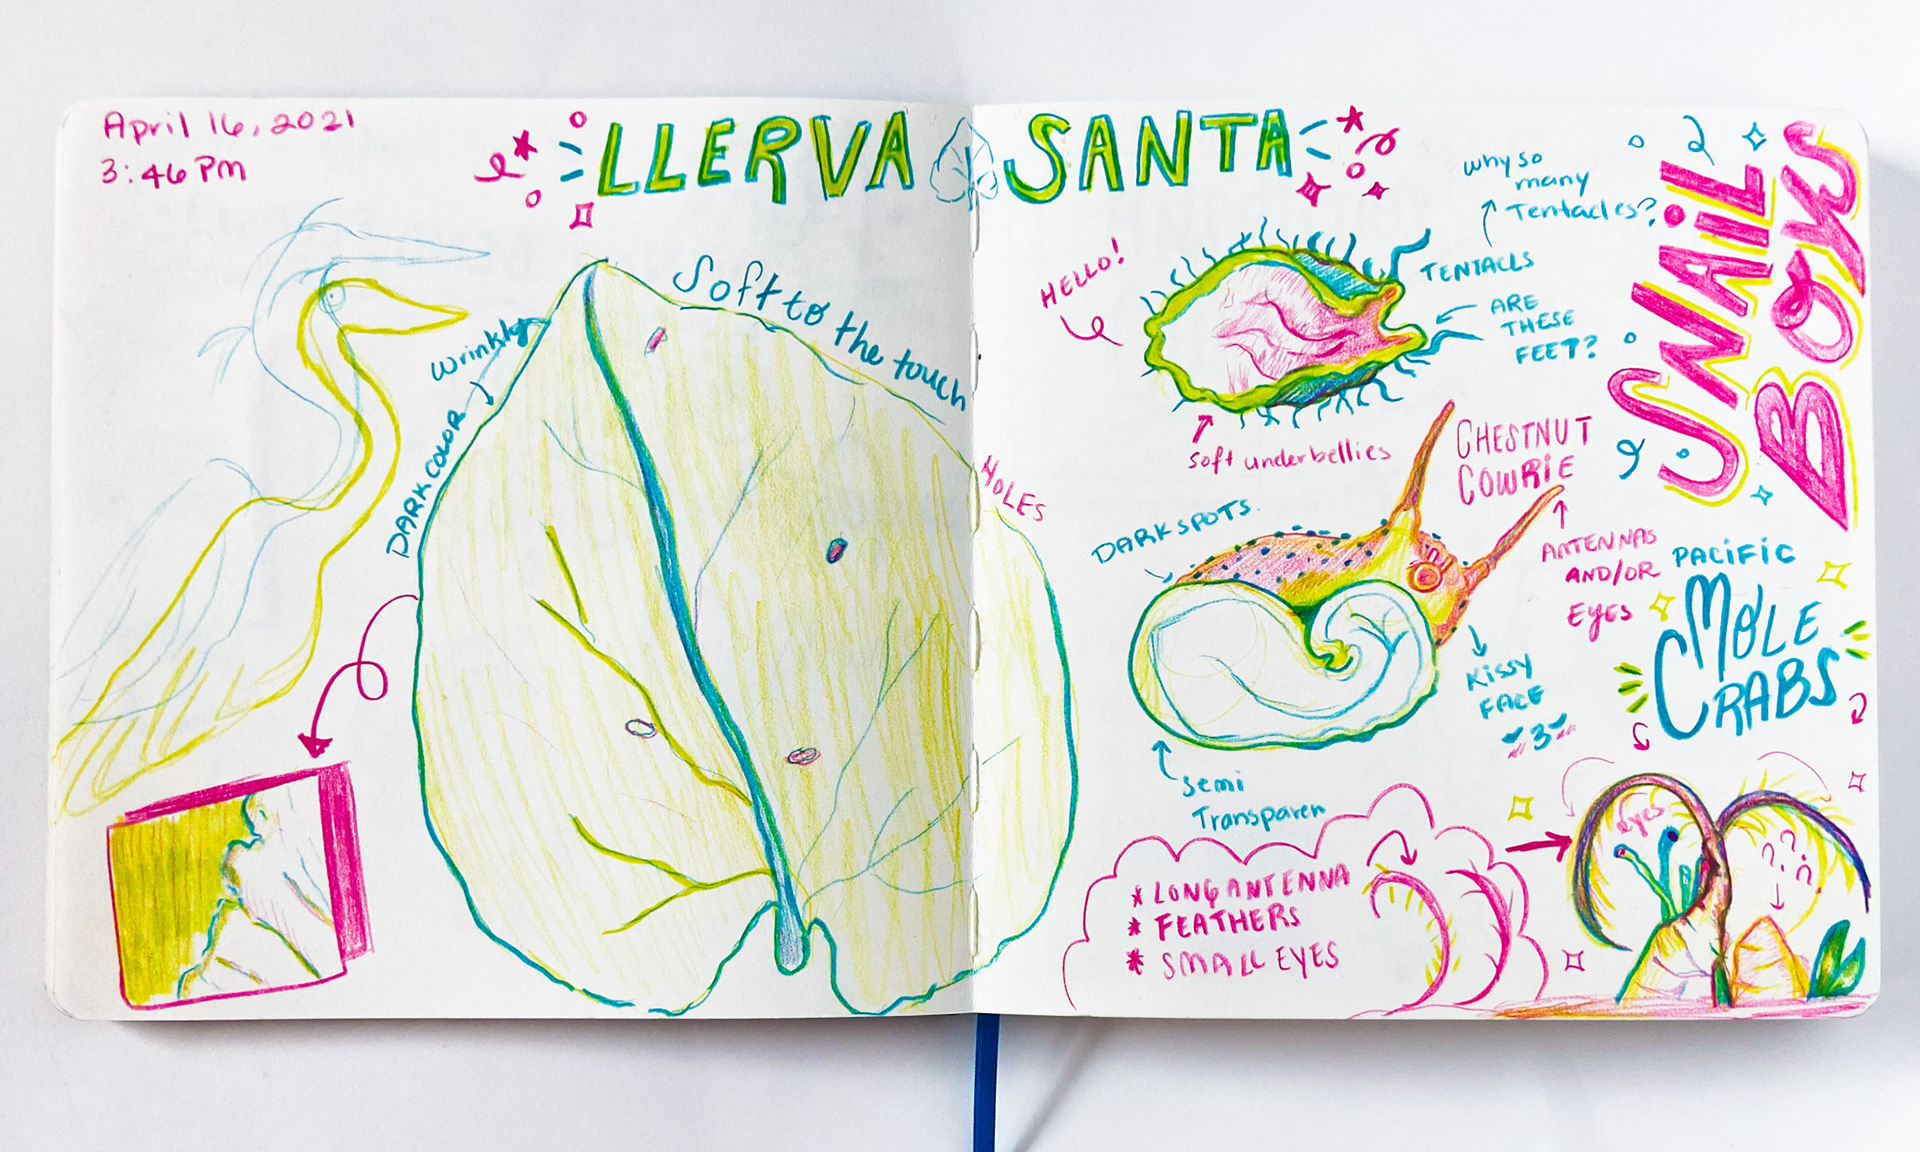 April 16, 2021
3:46 PM
LLERVA SANTA
Soft to the touch
wrinkly
DARK COLOR
HOLES
HELLO!
why so
many
Tentacles?
TENTACLS
ARE
THESE
FEET?
soft underbellies
SNAIL
BOYS
CHESTNUT
COWRIE
DARK SPOTS.
ANTENNAS
AND/OR
EYES
KISSY
FACE
3
Semi
Transparen
PACIFIC
MOLE
CRABS
* LONG ANTENNA
* FEATHERS
* SMALL EYES
eyes
???